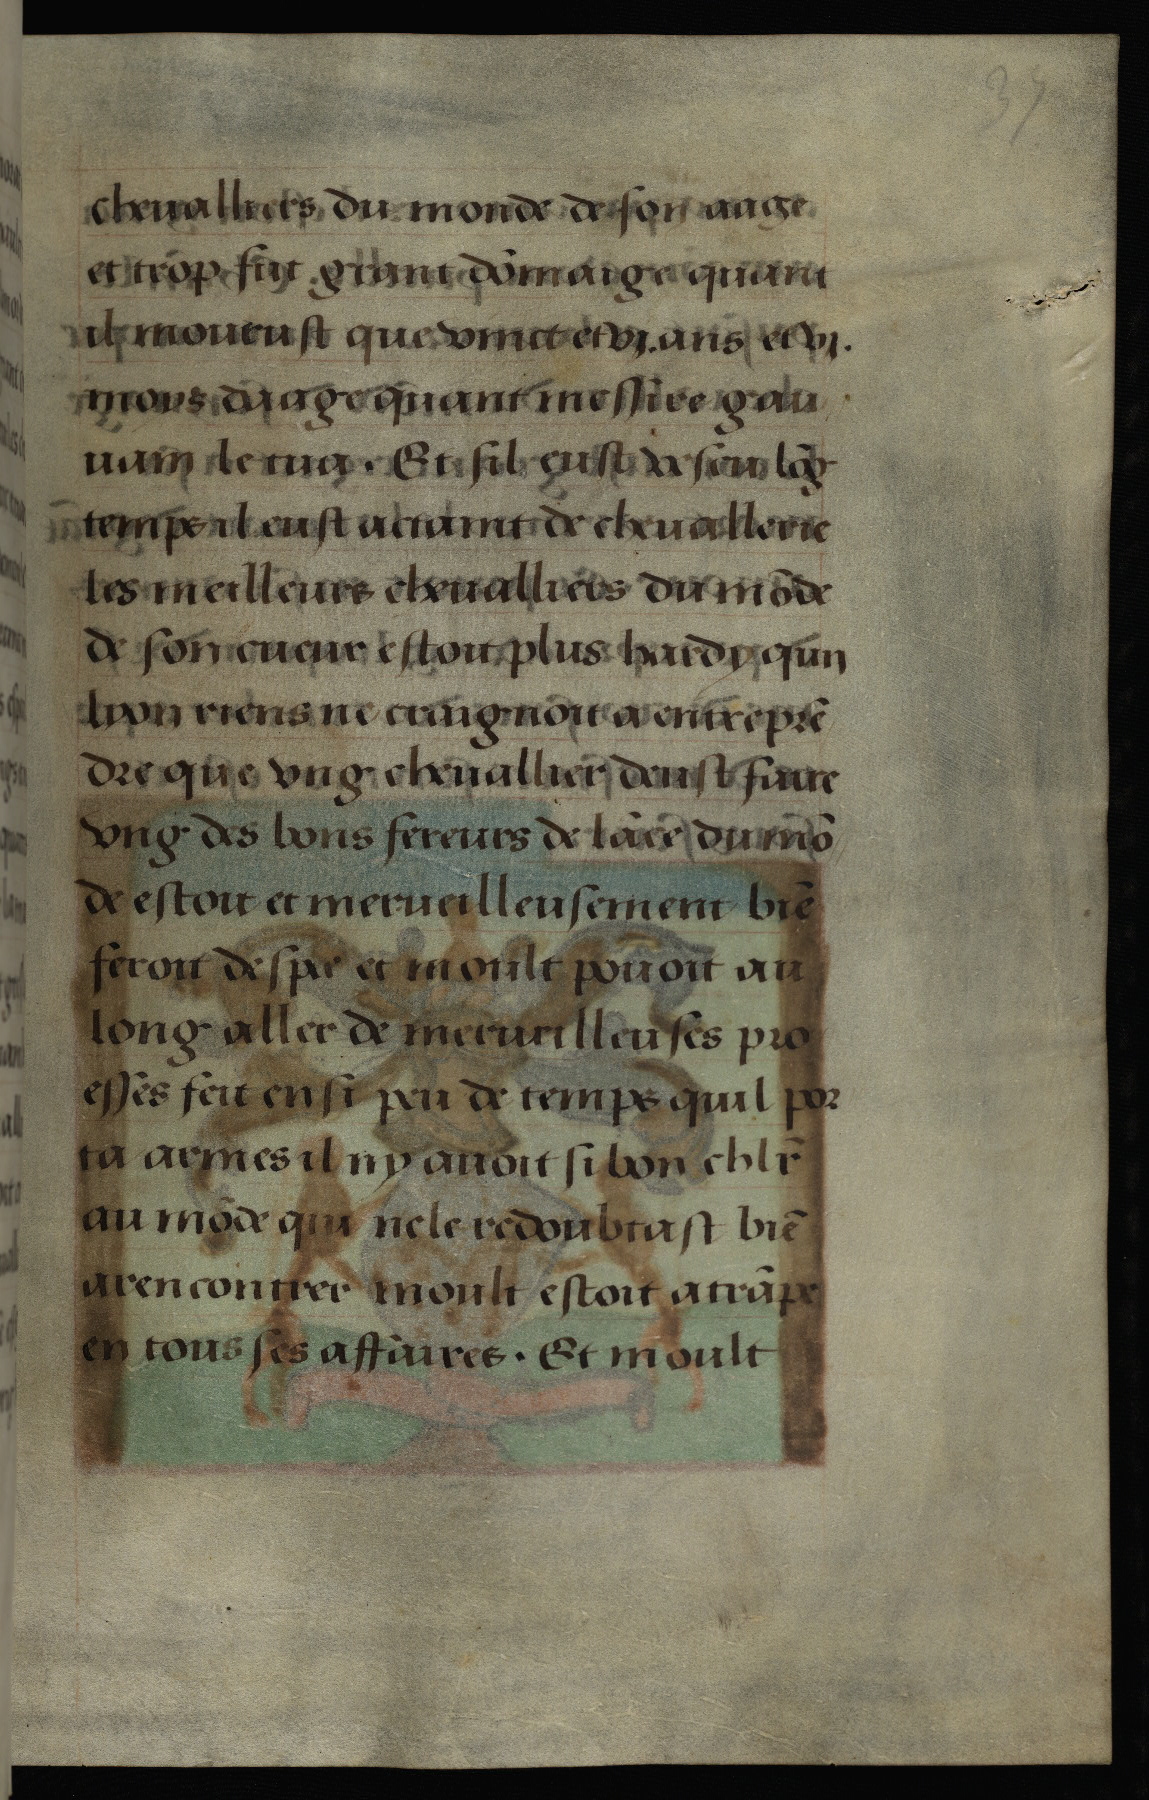 37
cheualliers du monde de son aage
et trop fut grant dōmaige quant
il mourust que vinct et vj. ans et vj.
moys daage quant messire gau
uain le tua. Et sil eust vescu lōg
temps il eust actaint de cheuallerie
les meilleurs cheualliers du mōde
de son cueur estoit plus hardy qun
lyon riens ne craignoit a entreprē
dre que vng cheuallier deust faire
vng des bons fereurs de lāce du mō
de estoit et merueilleusement biē
feroit despee et moult pouoit au
long aller de merueilleuses pro
esses feit en si peu de temps quil por
ta armes il ny auoit si bon chlr̄
au mōde qui ne le redoubtast biē
a rencontrer moult estoit atrāpe
en tous ses affaires. Et moult